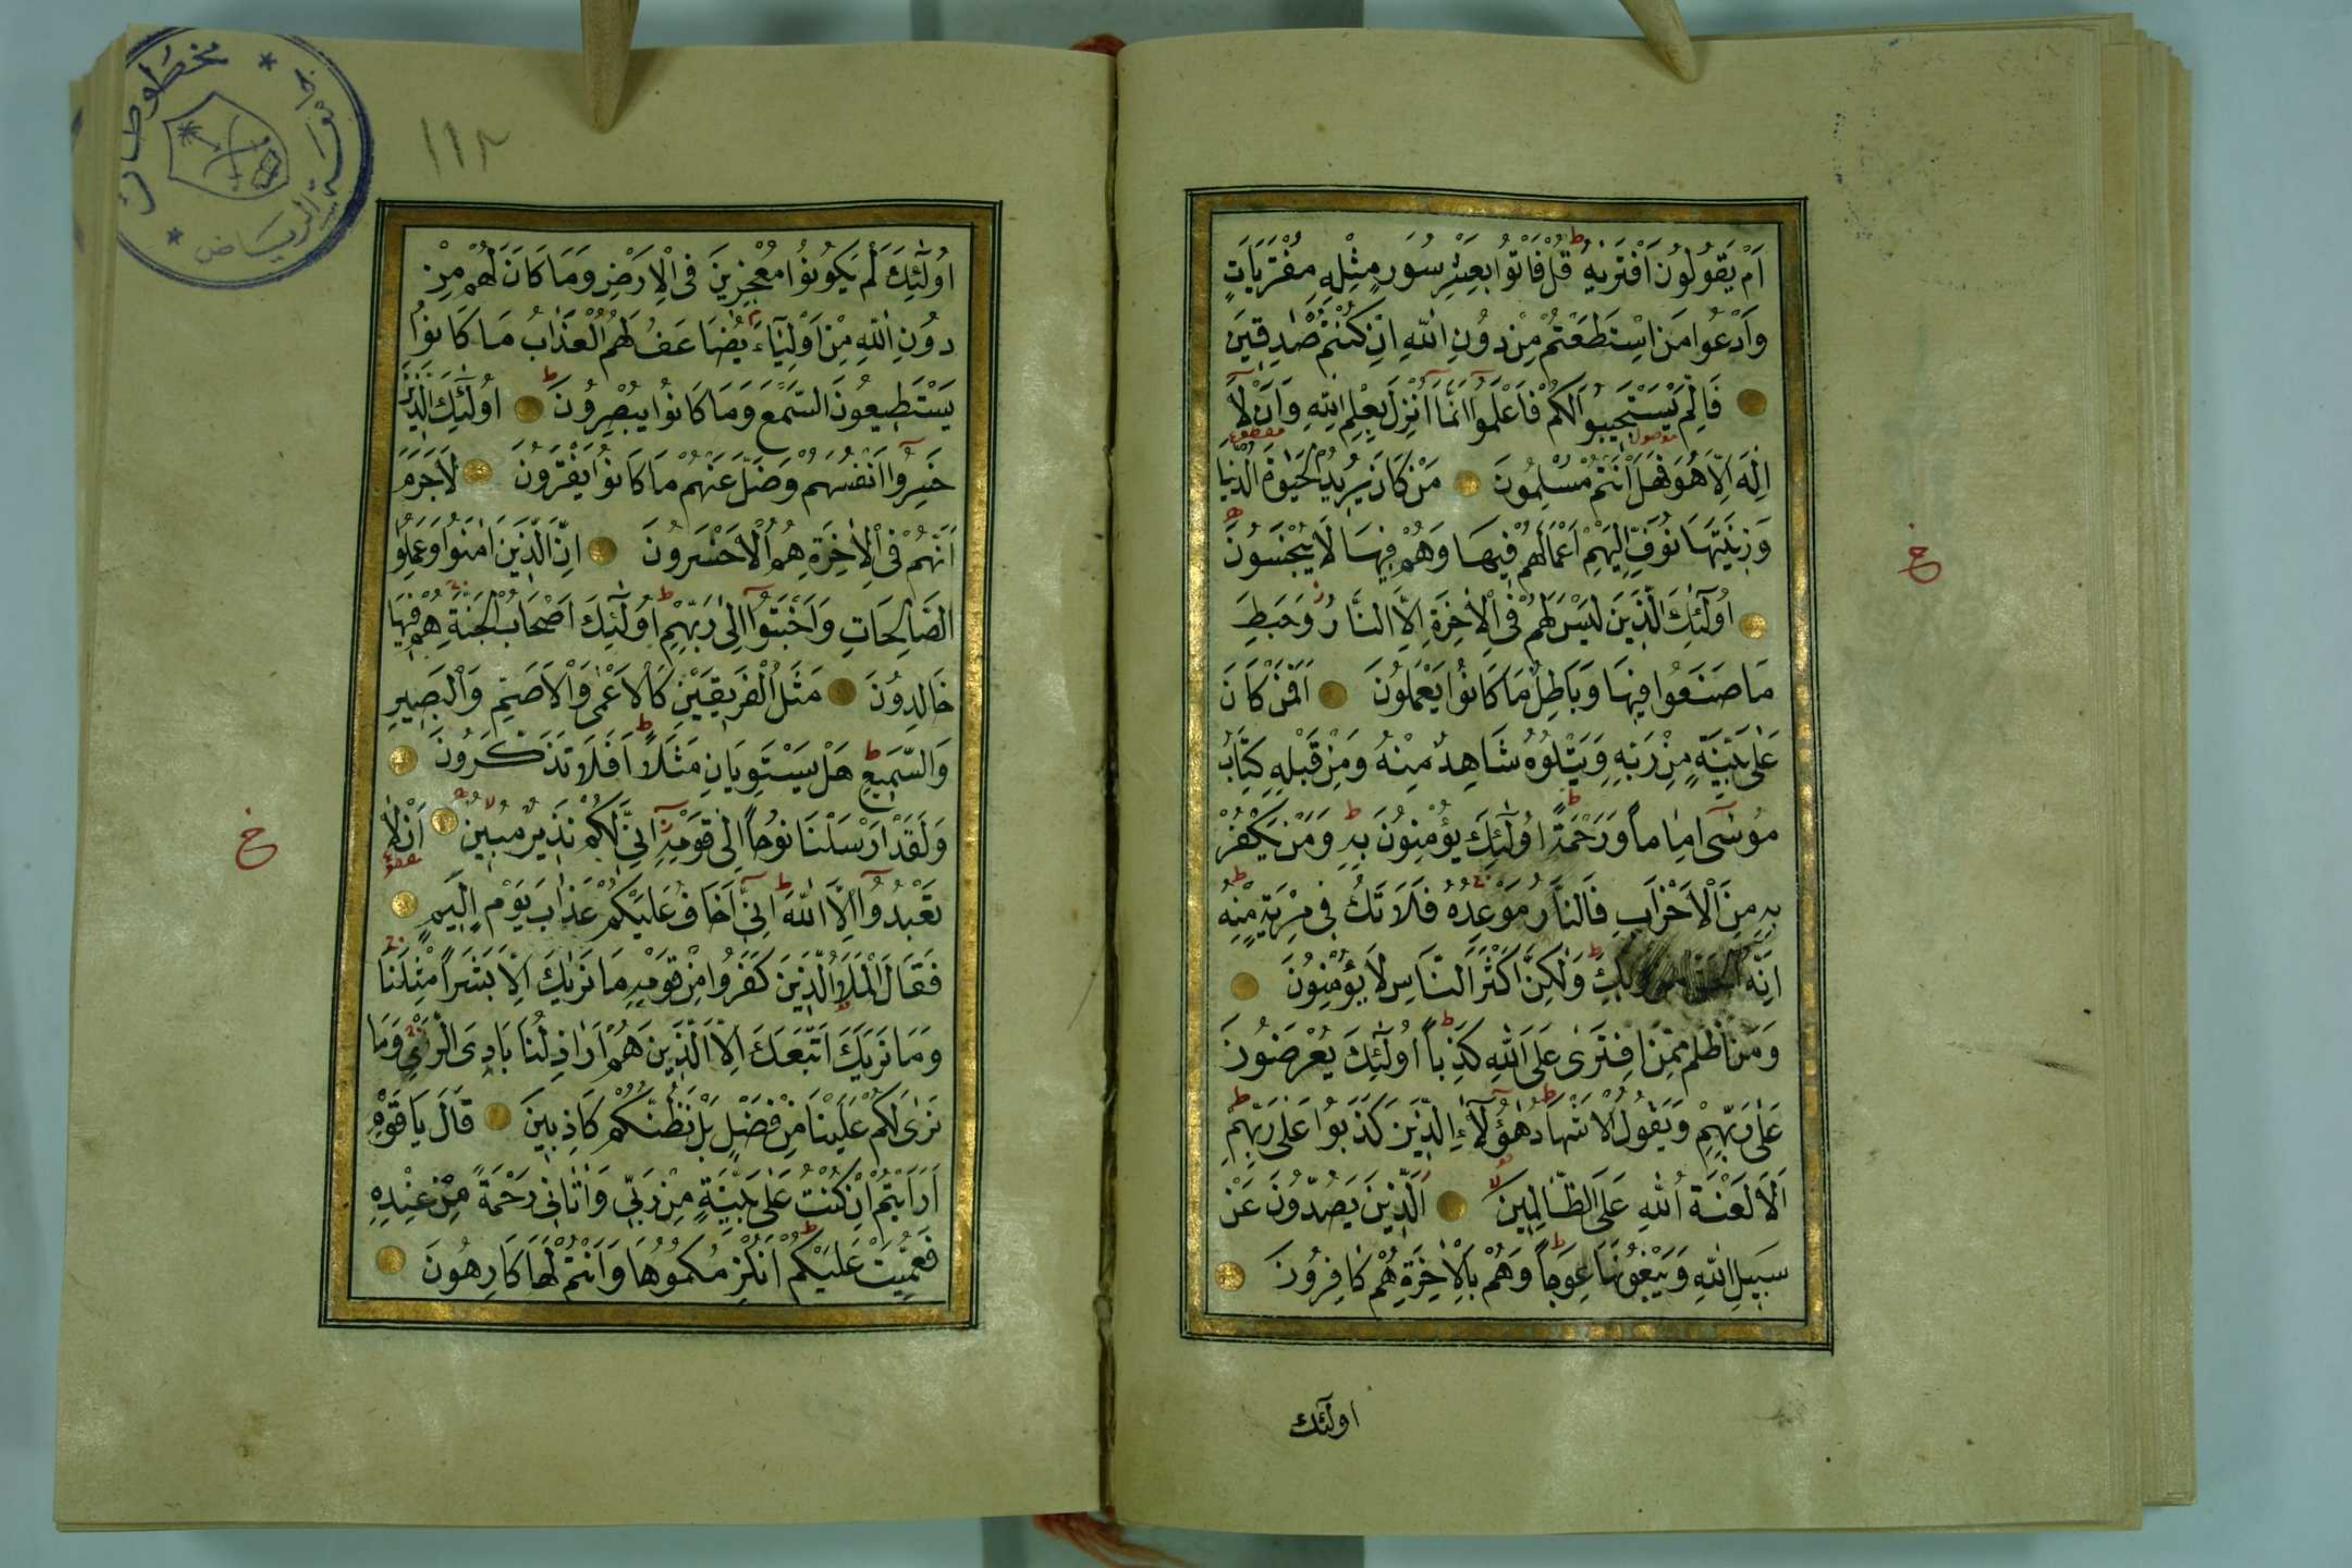 اَمْ يَقُولُونَ افْتَرٰيهُ قُلْ فَاْتُوا بِعَشْرِ سُوَرٍ مِثْلِهِ مُفْتَرَيَاتٍ
وَادْعُوا مَنِ اسْتَطَعْتُمْ مِنْ دُونِ اللّٰهِ اِنْ كُنْتُمْ صَادِقِينَ
فَاِلَّمْ يَسْتَجِيبُوا لَكُمْ فَاعْلَمُوا اَنَّمَا اُنْزِلَ بِعِلْمِ اللّٰهِ وَاَنْ لَا
اِلٰهَ اِلَّا هُوَ فَهَلْ اَنْتُمْ مُسْلِمُونَ مَنْ كَانَ يُرِيدُ الْحَيٰوةَ الدُّنْيَا
وَزِينَتَهَا نُوَفِّ اِلَيْهِمْ اَعْمَالَهُمْ فِيهَا وَهُمْ فِيهَا لَا يُبْخَسُونَ
خ
اُولٰٓئِكَ الَّذِينَ لَيْسَ لَهُمْ فِى الْاٰخِرَةِ اِلَّا النَّارُ وَحَبِطَ
مَا صَنَعُوا فِيهَا وَبَاطِلٌ مَا كَانُوا يَعْمَلُونَ اَفَمَنْ كَانَ
عَلٰى بَيِّنَةٍ مِنْ رَبِّهِ وَيَتْلُوهُ شَاهِدٌ مِنْهُ وَمِنْ قَبْلِهِ كِتَابُ
مُوسٰٓى اِمَامًا وَرَحْمَةً اُولٰٓئِكَ يُؤْمِنُونَ بِهِ وَمَنْ يَكْفُرْ
بِهِ مِنَ الْاَحْزَابِ فَالنَّارُ مَوْعِدُهُ فَلَا تَكُ فِى مِرْيَةٍ مِنْهُ
اِنَّهُ الْحَقُّ مِنْ رَبِّكَ وَلٰكِنَّ اَكْثَرَ النَّاسِ لَا يُؤْمِنُونَ
وَمَنْ اَظْلَمُ مِمَّنِ افْتَرٰى عَلَى اللّٰهِ كَذِبًا اُولٰٓئِكَ يُعْرَضُونَ
عَلٰى رَبِّهِمْ وَيَقُولُ الْاَشْهَادُ هٰٓؤُلَاءِ الَّذِينَ كَذَبُوا عَلٰى رَبِّهِمْ
اَلَا لَعْنَةُ اللّٰهِ عَلَى الظَّالِمِينَ اَلَّذِينَ يَصُدُّونَ عَنْ
سَبِيلِ اللّٰهِ وَيَبْغُونَهَا عِوَجًا وَهُمْ بِالْاٰخِرَةِ هُمْ كَافِرُونَ
اولٓئك
١١٢
مخطوطات
الرياض
اُولٰٓئِكَ لَمْ يَكُونُوا مُعْجِزِينَ فِى الْاَرْضِ وَمَا كَانَ لَهُمْ مِنْ
دُونِ اللّٰهِ مِنْ اَوْلِيَٓاءَ يُضَاعَفُ لَهُمُ الْعَذَابُ مَا كَانُوا
يَسْتَطِيعُونَ السَّمْعَ وَمَا كَانُوا يُبْصِرُونَ اُولٰٓئِكَ الَّذِينَ
خَسِرُوا اَنْفُسَهُمْ وَضَلَّ عَنْهُمْ مَا كَانُوا يَفْتَرُونَ لَاجَرَمَ
اَنَّهُمْ فِى الْاٰخِرَةِ هُمُ الْاَخْسَرُونَ اِنَّ الَّذِينَ اٰمَنُوا وَعَمِلُوا
الصَّالِحَاتِ وَاَخْبَتُوا اِلٰى رَبِّهِمْ اُولٰٓئِكَ اَصْحَابُ الْجَنَّةِ هُمْ فِيهَا
خَالِدُونَ مَثَلُ الْفَرِيقَيْنِ كَالْاَعْمٰى وَالْاَصَمِّ وَالْبَصِيرِ
وَالسَّمِيعِ هَلْ يَسْتَوِيَانِ مَثَلًا اَفَلَا تَذَكَّرُونَ
وَلَقَدْ اَرْسَلْنَا نُوحًا اِلٰى قَوْمِهِ اِنِّى لَكُمْ نَذِيرٌ مُبِينٌ اَنْ لَا
خ
تَعْبُدُوا اِلَّا اللّٰهَ اِنِّى اَخَافُ عَلَيْكُمْ عَذَابَ يَوْمٍ اَلِيمٍ
فَقَالَ الْمَلَاُ الَّذِينَ كَفَرُوا مِنْ قَوْمِهِ مَا نَرٰيكَ اِلَّا بَشَرًا مِثْلَنَا
وَمَا نَرٰيكَ اتَّبَعَكَ اِلَّا الَّذِينَ هُمْ اَرَاذِلُنَا بَادِىَ الرَّاْىِ وَمَا
نَرٰى لَكُمْ عَلَيْنَا مِنْ فَضْلٍ بَلْ نَظُنُّكُمْ كَاذِبِينَ قَالَ يَا قَوْمِ
اَرَاَيْتُمْ اِنْ كُنْتُ عَلٰى بَيِّنَةٍ مِنْ رَبِّى وَاٰتَانِى رَحْمَةً مِنْ عِنْدِهِ
فَعُمِّيَتْ عَلَيْكُمْ اَنُلْزِمُكُمُوهَا وَاَنْتُمْ لَهَا كَارِهُونَ